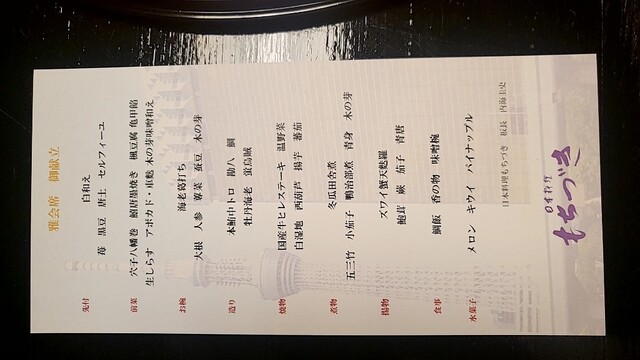 雅会席 御献立
先付
白和え
苺 黒豆 唐土 セルフィーユ
前菜
穴子八幡巻 鰆唐墨焼き 楓豆腐 亀甲餡
生しらす アボカド・車麩 木の芽味噌和え
お椀
海老葛打ち
大根 人参 蓴菜 蚕豆 木の芽
造り
本鮪中トロ 勘八 鯛
牡丹海老 蛍烏賊
焼物
国産牛ヒレステーキ 温野菜
白湿地 西葫芦 揚芋 蕃茄
煮物
冬瓜田舎煮
五三竹 小茄子 鴨治部煮 青身 木の芽
揚物
ズワイ蟹天麩羅
鮑茸 蕨 茄子 青唐
食事
鯛飯 香の物 味噌椀
水菓子
メロン キウイ パイナップル
日本料理もちづき 板長 内海圭史
日本料理
もちづき